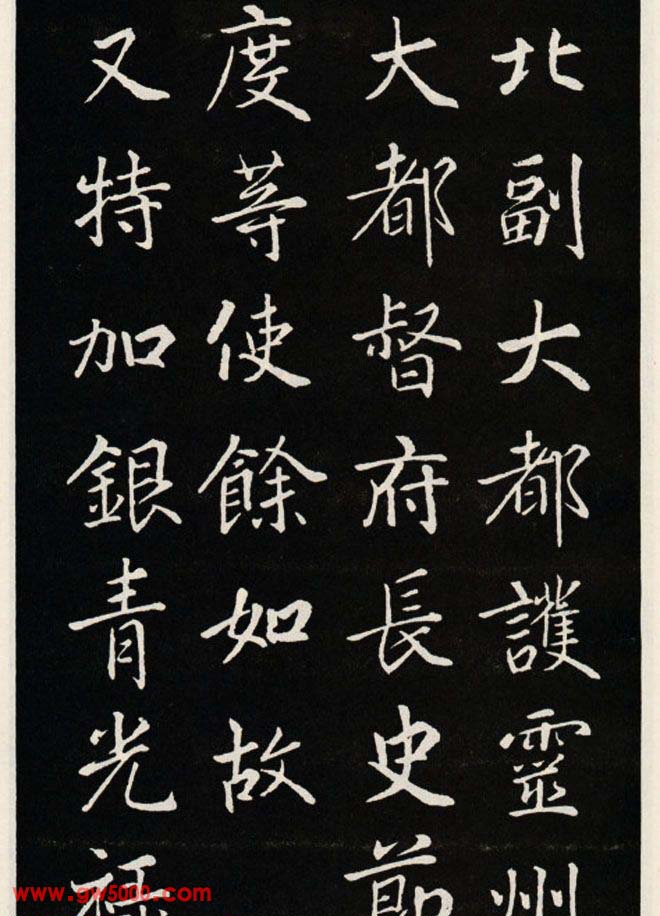 北副大都護靈州
大都督府長史節
度等使餘如故
又特加銀青光祿
www.gw5000.com